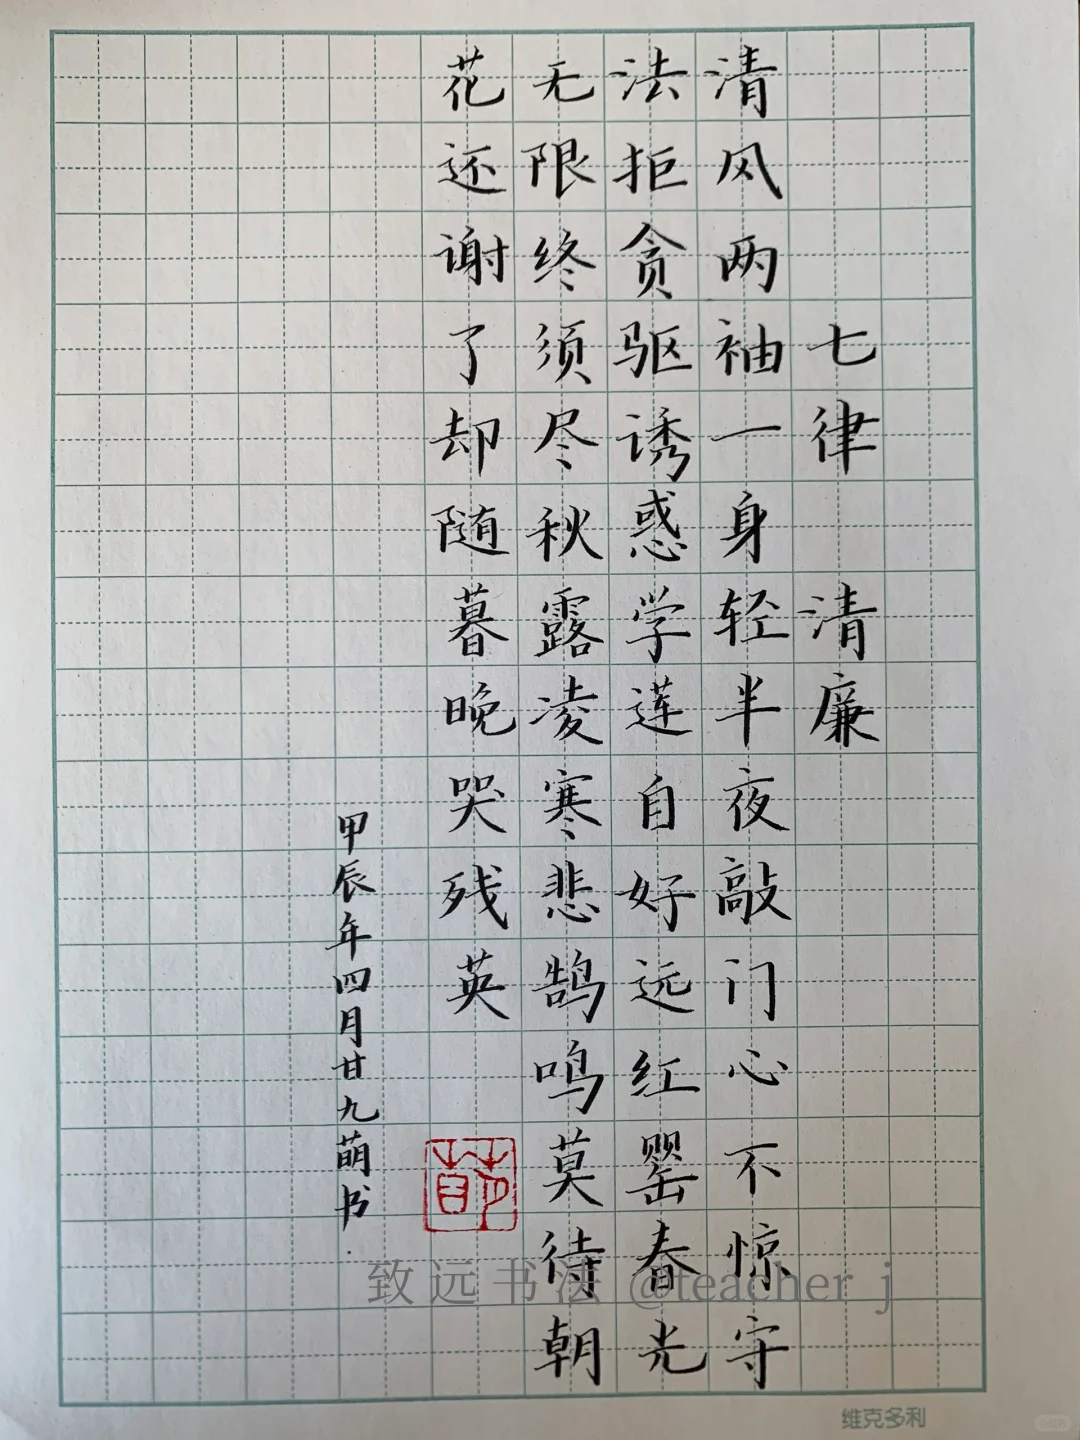 七律 清廉
清风两袖一身轻半夜敲门心不惊守
法拒贪驱诱惑学莲自好远红罂春光
无限终须尽秋露凌寒悲鹄鸣莫待朝
花还谢了却随暮晚哭残英
甲辰年四月廿九萌书
致远书法 @teacher_j
维克多利